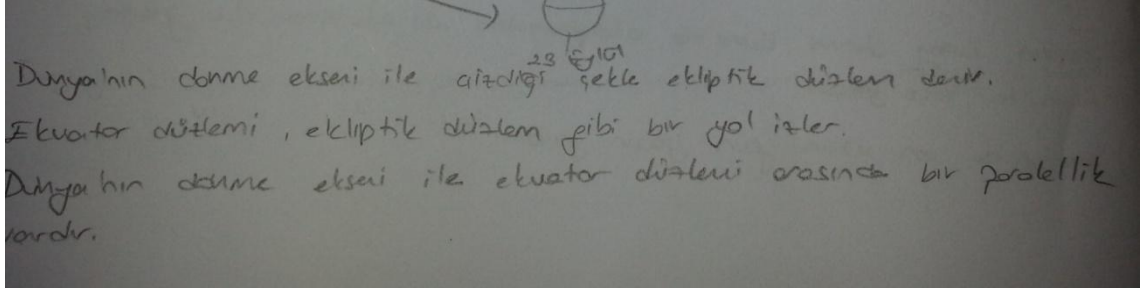 23 Eylül
Dünya'nın dönme ekseni ile çizdiği şekle ekliptik düzlem denir.
Ekvator düzlemi, ekliptik düzlem gibi bir yol izler.
Dünya'nın dönme ekseni ile ekvator düzlemi arasında bir paralellik
vardır.